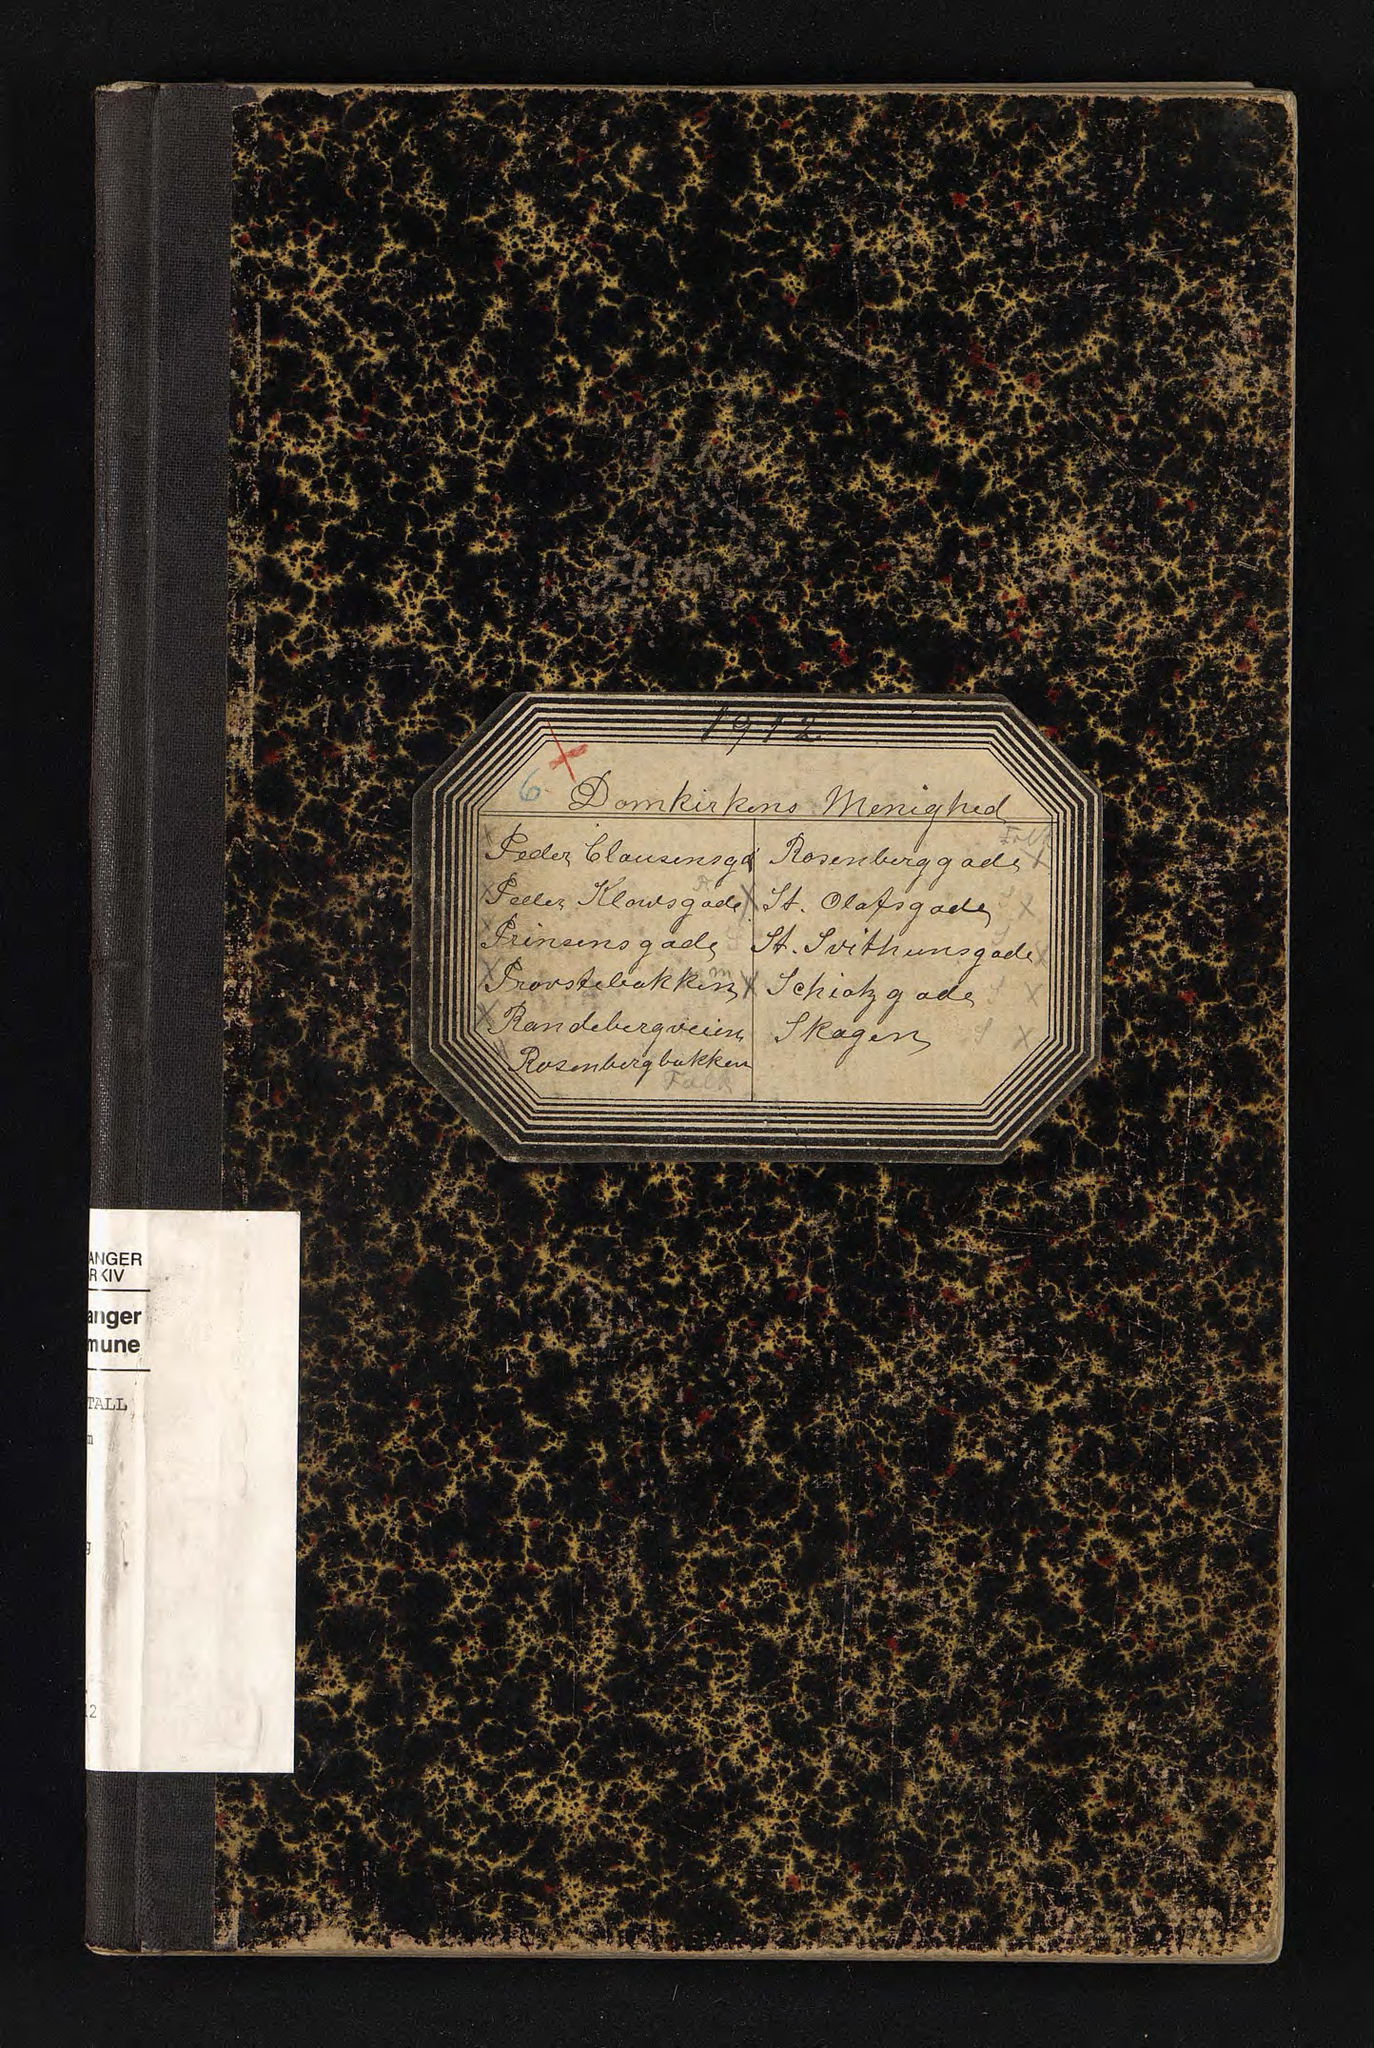 1912
6.
Domkirkens Menighed
Peder Clausensgd
Peder Klowsgade
Prinsensgade
Provstebakken
Randebergveien
Rosenbergbakken
Falk
Rosenberggade
St. Olafsgade
St. Svithunsgade
Schiøtzgade
Skagen
ANGER
RKIV
anger
mune
TALL
m
g
12